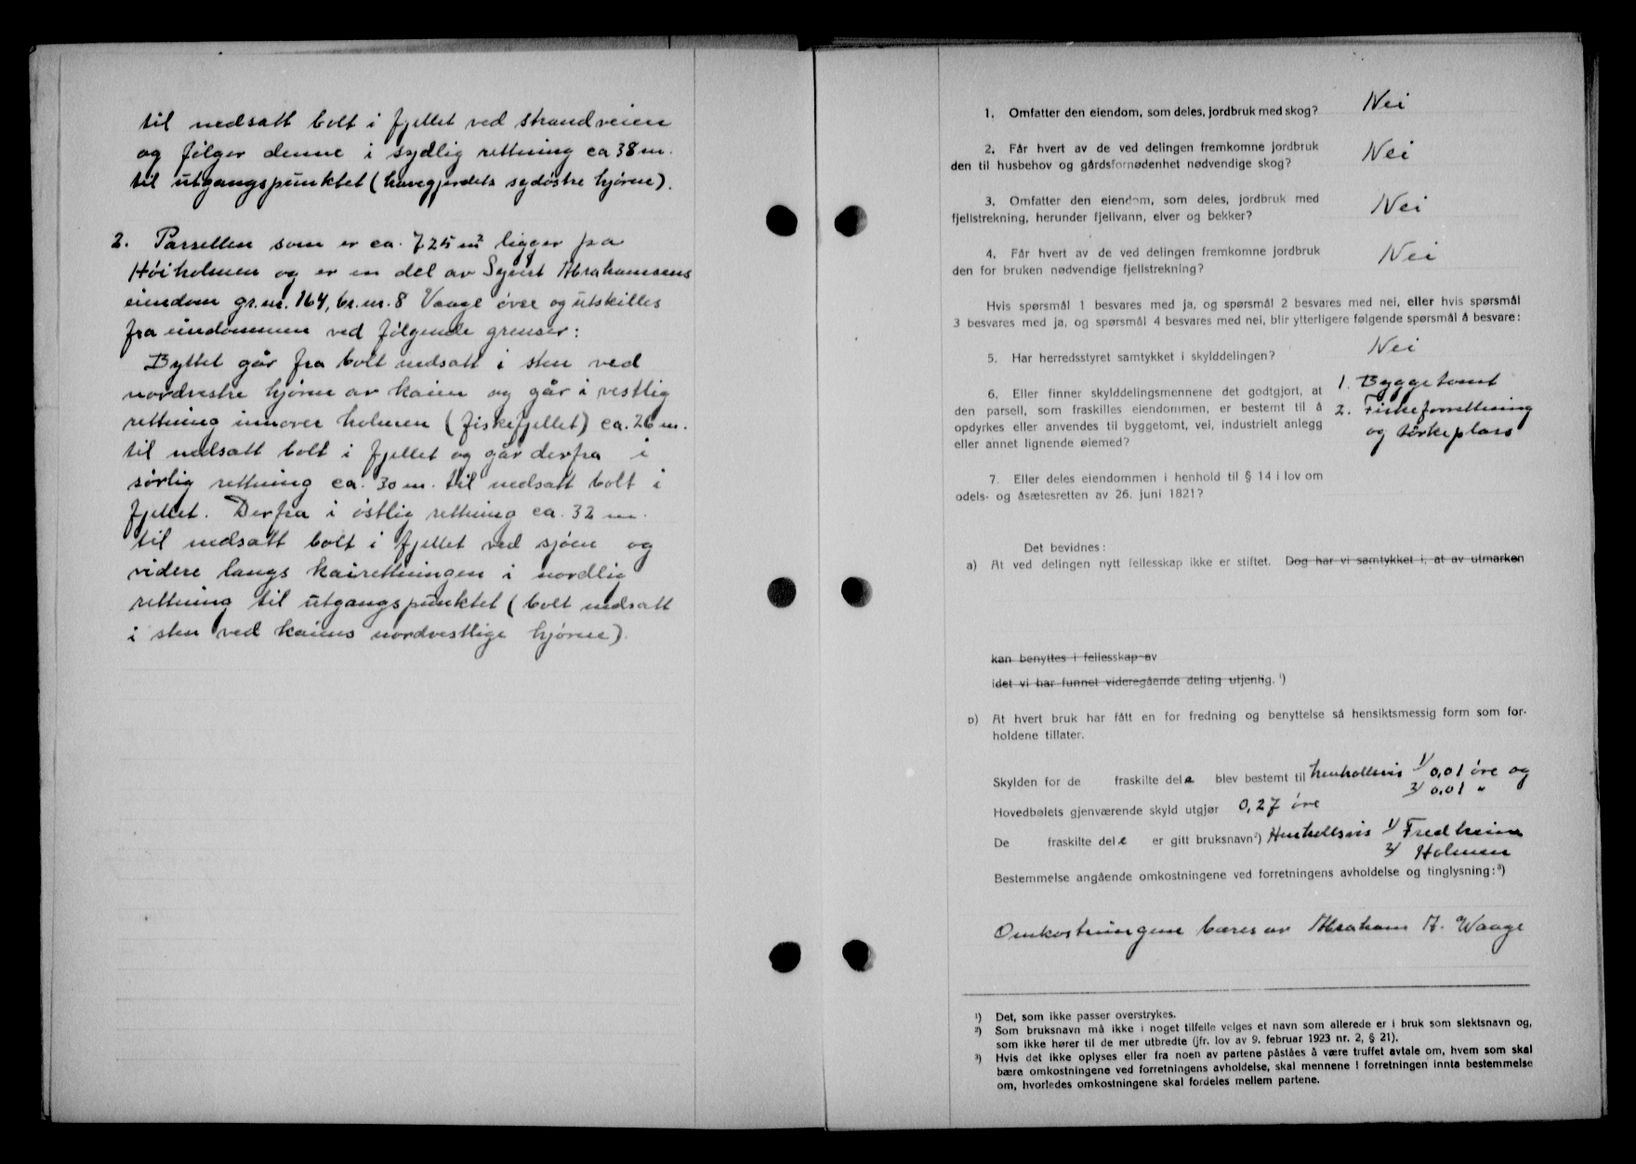 til nedsatt bolt i fjellet ved strandveien
og følger denne i sydlig rettning ca 38 m.
til utgangspunktet (havegjerdets sydøstre hjørne).
2. Parsellen som er ca. 725 m² ligger på
Høiholmen og er en del av Syvert Abrahamsens
eiendom gr.nr. 164, br.nr. 8 Vaage øvre og utskilles
fra eiendommen ved følgende grenser:
Byttet går fra bolt nedsatt i sten ved
nordvestre hjørne av kaien og går i vestlig
rettning innover holmen (fiskefjellet) ca. 26 m.
til nedsatt bolt i fjellet og går derfra i
sørlig rettning ca. 30 m. til nedsatt bolt i
fjellet. Derfra i østlig rettning ca. 32 m.
til nedsatt bolt i fjellet ved sjøen og
videre langs kairettningen i nordlig
rettning til utgangspunktet (bolt nedsatt
i sten ved kaiens nordvestlige hjørne).
1. Omfatter den eiendom, som deles, jordbruk med skog? Nei
2. Får hvert av de ved delingen fremkomne jordbruk
den til husbehov og gårdsfornødenhet nødvendige skog? Nei
3. Omfatter den eiendom, som deles, jordbruk med
fjellstrekning, herunder fjellvann, elver og bekker? Nei
4. Får hvert av de ved delingen fremkomne jordbruk
den for bruken nødvendige fjellstrekning? Nei
Hvis spørsmål 1 besvares med ja, og spørsmål 2 besvares med nei, eller hvis spørsmål
3 besvares med ja, og spørsmål 4 besvares med nei, blir ytterligere følgende spørsmål å besvare:
5. Har herredsstyret samtykket i skylddelingen? Nei
6. Eller finner skylddelingsmennene det godtgjort, at 1. Byggetomt
den parsell, som fraskilles eiendommen, er bestemt til å 2. Fiskeforrettning
opdyrkes eller anvendes til byggetomt, vei, industrielt anlegg og tørkeplass
eller annet lignende øiemed?
7. Eller deles eiendommen i henhold til § 14 i lov om
odels- og åsætesretten av 26. juni 1821?
Det bevidnes:
a) At ved delingen nytt fellesskap ikke er stiftet. Dog har vi samtykket i, at av utmarken
kan benyttes i fellesskap av
idet vi har funnet videregående deling utjenlig. ¹)
b) At hvert bruk har fått en for fredning og benyttelse så hensiktsmessig form som for-
holdene tillater.
Skylden for de fraskilte dele blev bestemt til henholdsvis 1/ 0,01 øre og
2/ 0,01 "
Hovedbølets gjenværende skyld utgjør 0,27 øre
De fraskilte dele er gitt bruksnavn²) Henholdsvis 1/ Fredheim
2/ Holmen
Bestemmelse angående omkostningene ved forretningens avholdelse og tinglysning:³)
Omkostningene bæres av Abraham A. Waage
¹) Det, som ikke passer overstrykes.
²) Som bruksnavn må ikke i noget tilfelle velges et navn som allerede er i bruk som slektsnavn og,
som ikke hører til de mer utbredte (jfr. lov av 9. februar 1923 nr. 2, § 21).
³) Hvis det ikke oplyses eller fra noen av partene påståes å være truffet avtale om, hvem som skal
bære omkostningene ved forretningens avholdelse, skal mennene i forretningen innta bestemmelse
om, hvorledes omkostningene skal fordeles mellem partene.